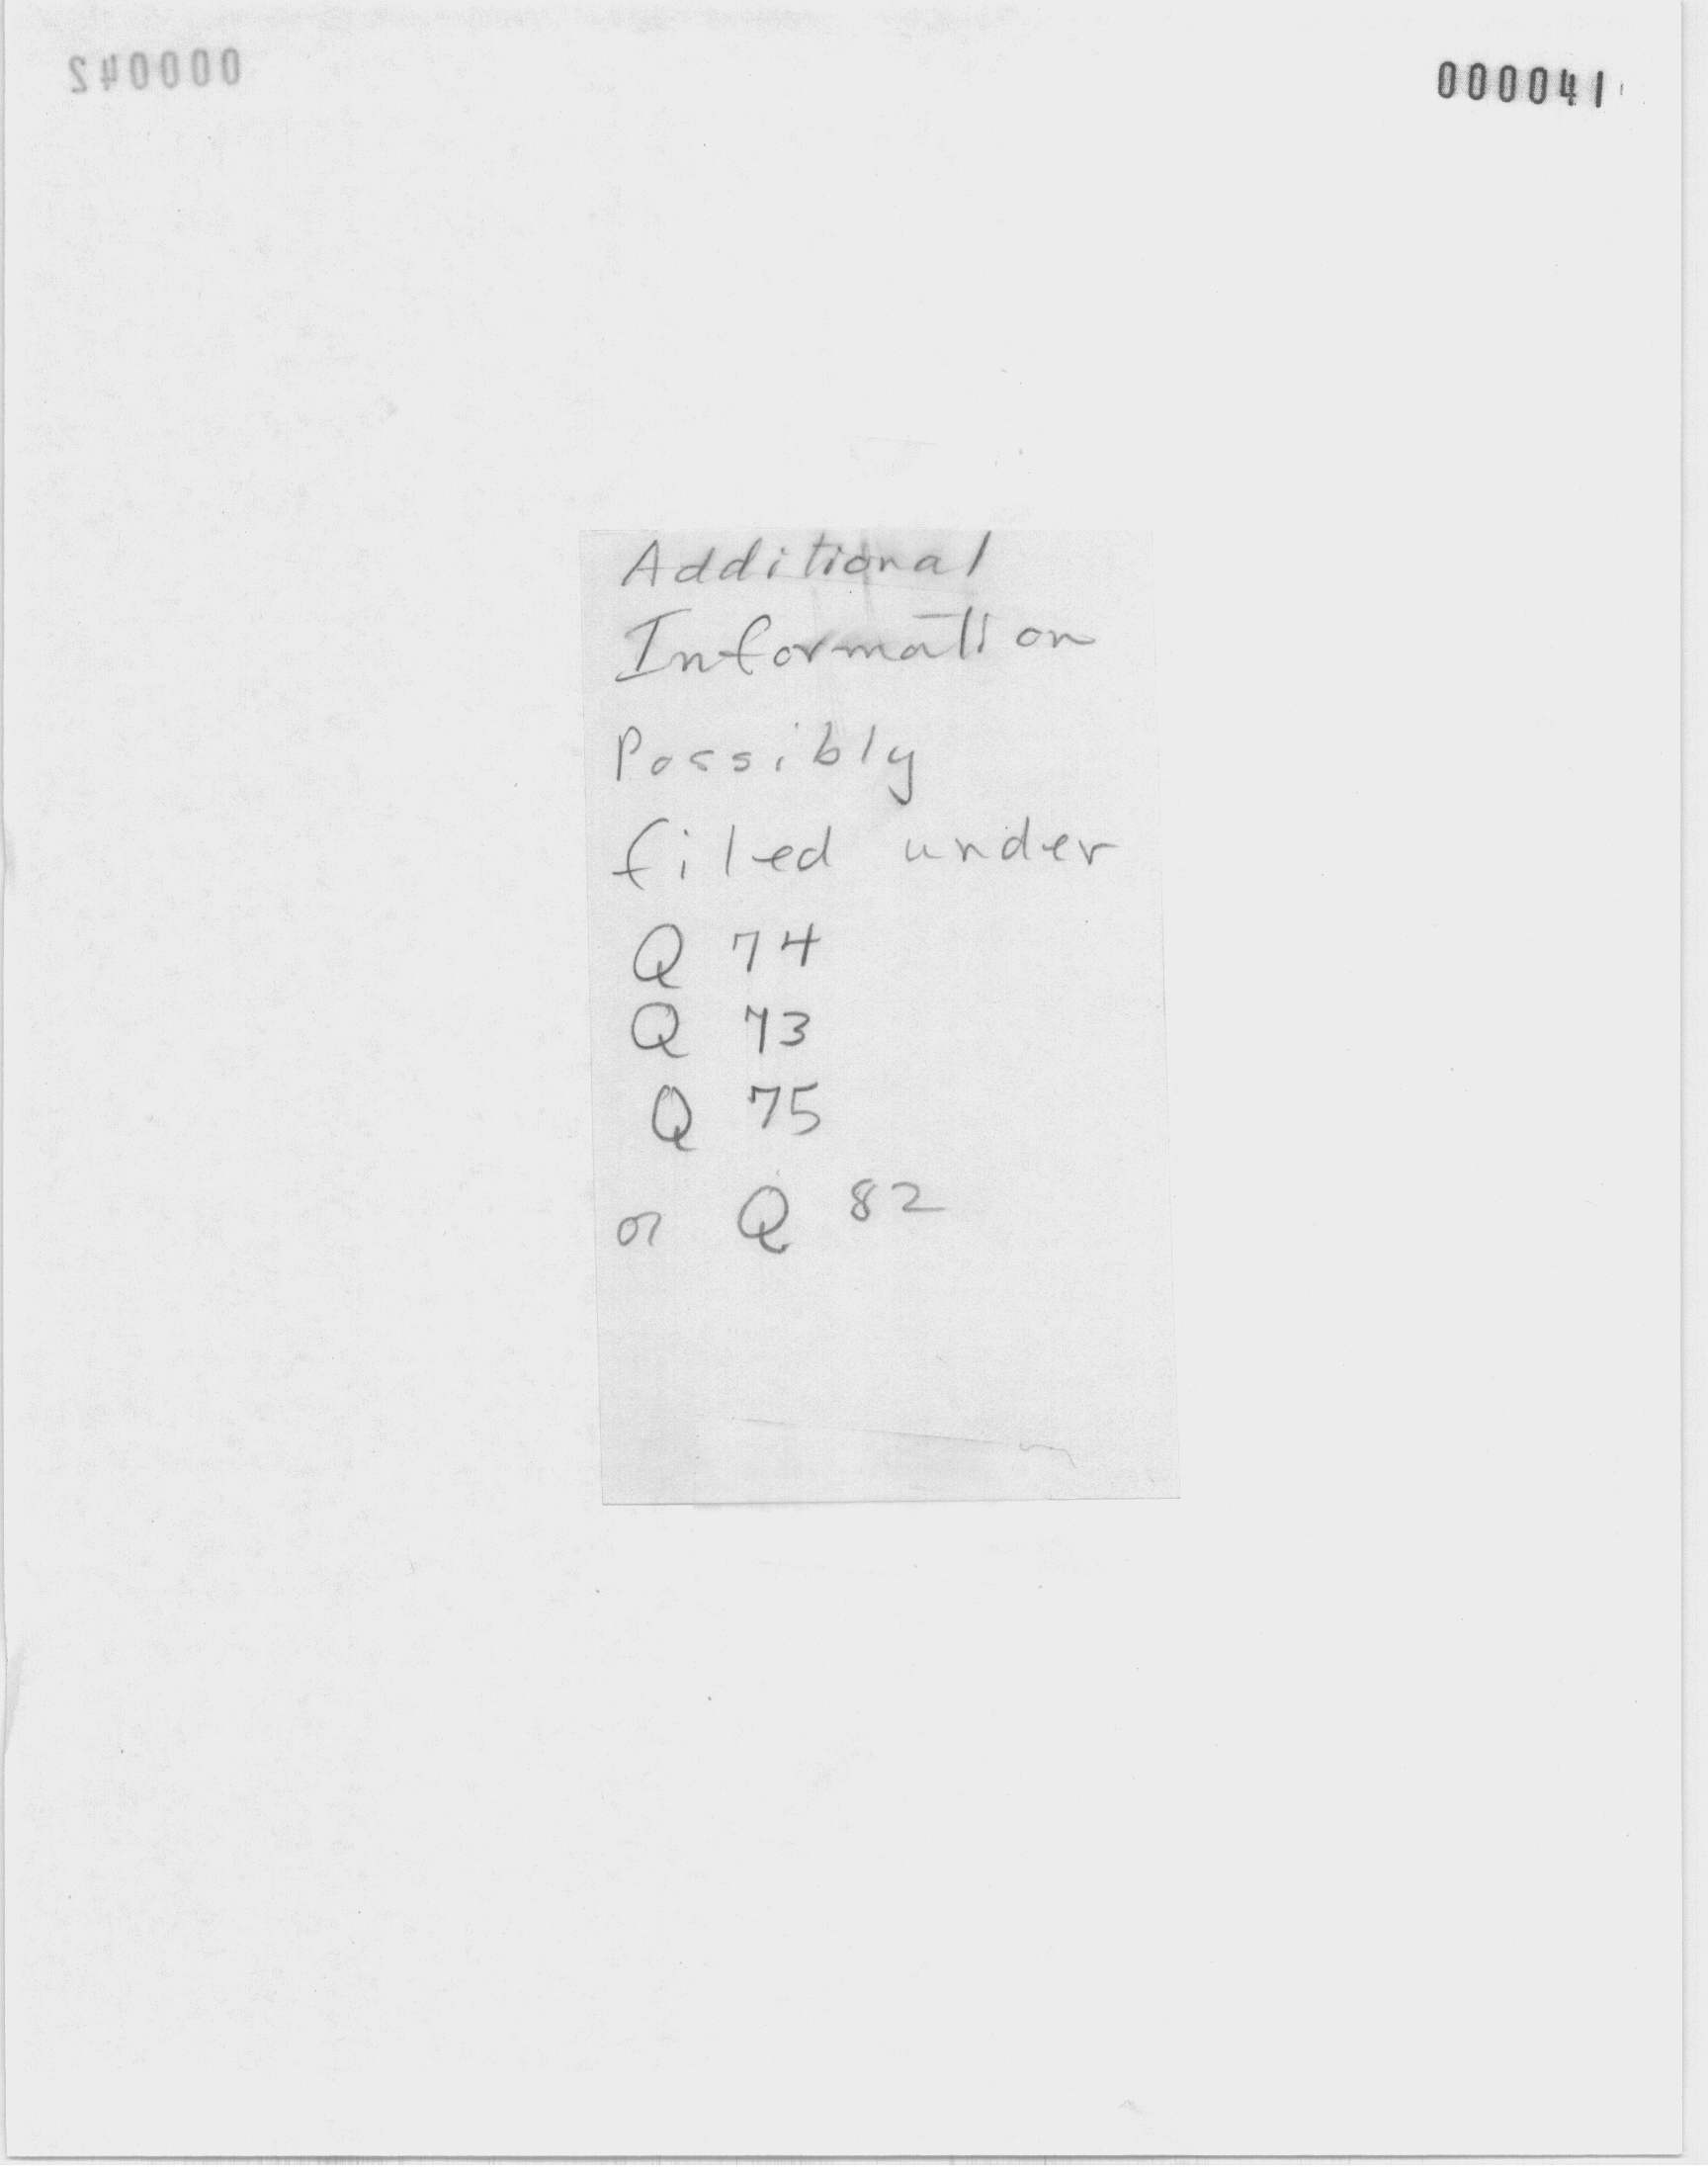 000042
000041
Additional
Information
Possibly
filed under
Q 74
Q 73
Q 75
or Q 82